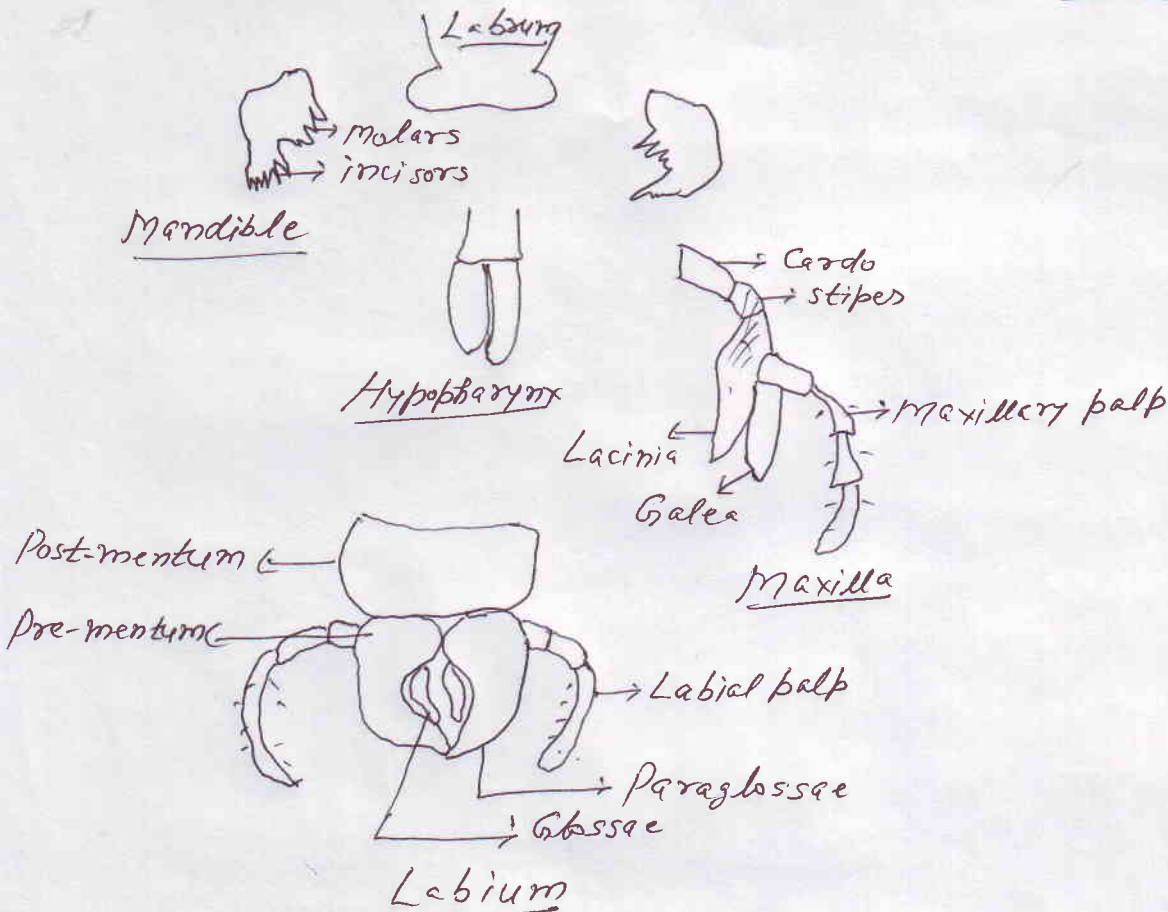 Labrum
Molars
incisors
Mandible
Hypopharynx
Cardo
stipes
Maxillary palp
Lacinia
Galea
Maxilla
Post-mentum
Pre-mentum
Labial palp
Paraglossae
Glossae
Labium